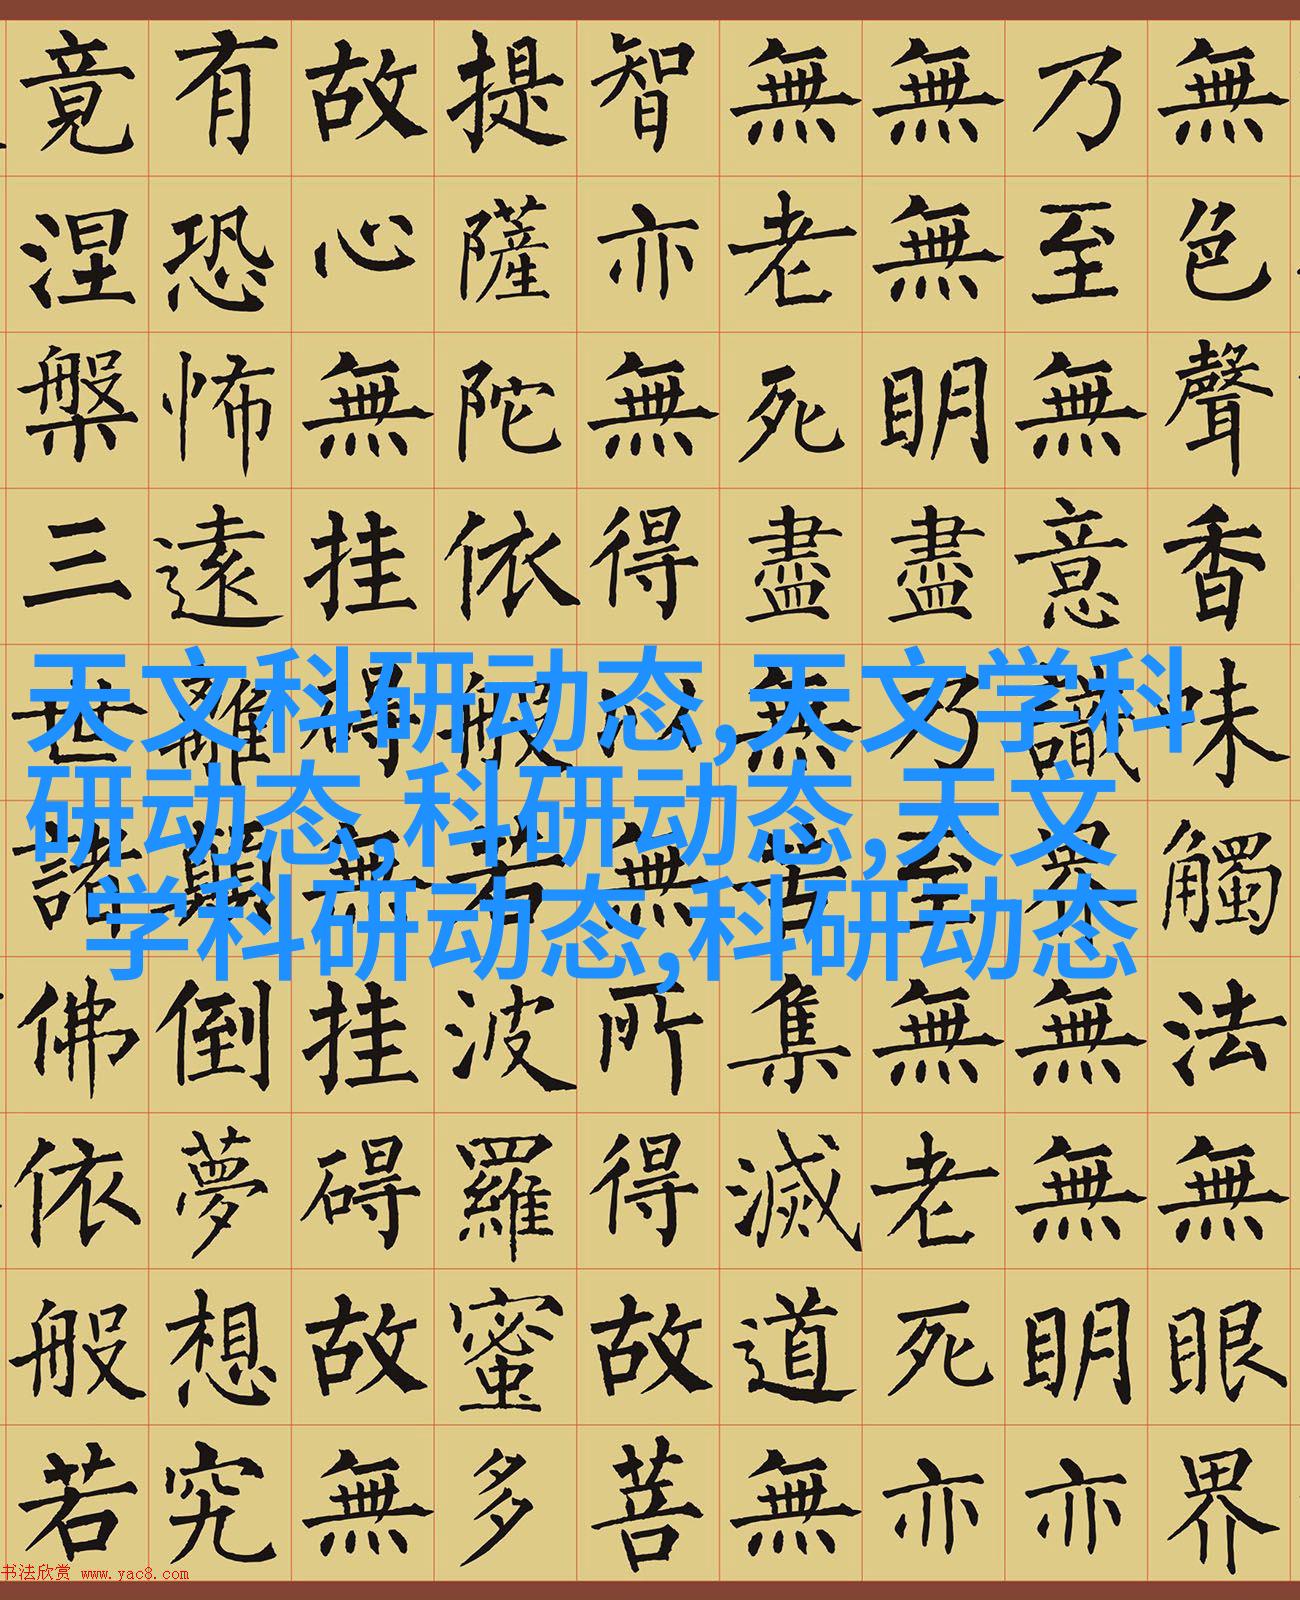 無色聲香味觸法無眼界
乃至無意識界無無眀亦
無無眀盡乃至無老死亦
無老死盡無苦集滅道無
智亦無得以無所得故菩
提薩陀依般若波羅蜜多
故心無挂碍無挂碍故無
有恐怖遠離顛倒夢想究
竟涅槃三世諸佛依般若
天文科研动态,天文学科
研动态,科研动态,天文
学科研动态,科研动态
书法欣赏 www.yac8.com